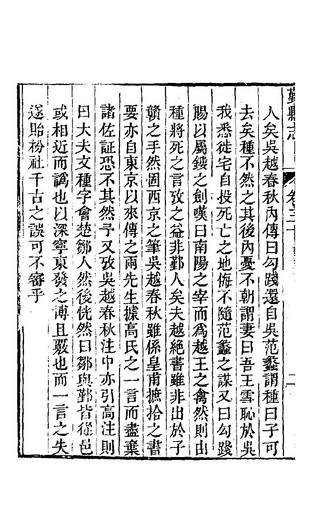 鄞縣志
卷三十
二
人矣吳越春秋內傳曰勾踐還自吳范蠡謂種曰子可
去矣種不然之其後內憂不朝謂妻曰吾王雪恥於吳
我悉徙宅自投死亡之地悔不隨范蠡之謀又曰勾踐
賜以屬鏤之劍嘆曰南陽之宰而為越王之禽然則由
種將死之言攷之益非鄞人矣夫越絕書雖非出於子
贛之手然固西京之筆吳越春秋雖係皇甫摭拾之書
要亦自東京以來傳之兩先生據高氏之一言而盡棄
諸佐証恐不其然乎又攷吳越春秋注中亦引高注則
曰大夫文種字會楚鄒人然後恍然曰鄒與鄞皆從邑
或相近而譌也以深寧東發之博且覈也而一言之失
遂貽枌社千古之誤可不審乎